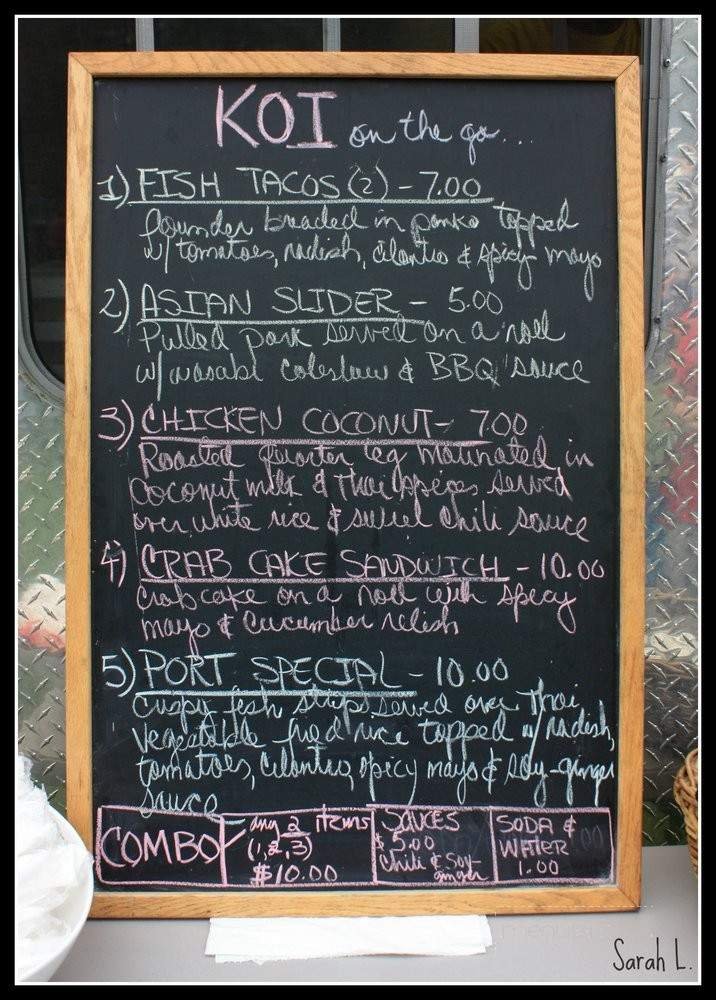 KOI on the go...
1) FISH TACOS (2) - 7.00
flounder breaded in panko topped
w/ tomatoes, radish, cilantro & spicy mayo
2) ASIAN SLIDER - 5.00
Pulled pork served on a roll
w/ wasabi coleslaw & BBQ sauce
3) CHICKEN COCONUT - 7.00
Roasted quarter leg marinated in
coconut milk & Thai spices served
over white rice & sweet chili sauce
4) CRAB CAKE SANDWICH - 10.00
crab cake on a roll with spicy
mayo & cucumber relish
5) PORT SPECIAL - 10.00
crispy fish strips served over Thai
vegetable fried rice topped w/ radish,
tomatoes, cilantro, spicy mayo & soy-ginger
sauce
COMBO
any 2 items
(1,2,3)
$10.00
SAUCES
$5.00
Chili & Soy-
ginger
SODA &
WATER
1.00
Sarah L.